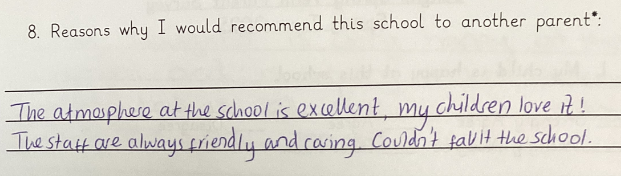 8. Reasons why I would recommend this school to another parent*:
The atmosphere at the school is excellent, my children love it!
The staff are always friendly and caring. Couldn't fault the school.